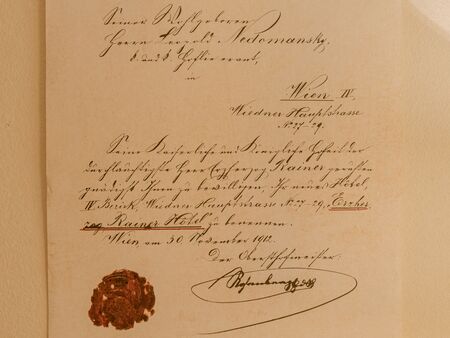 Seiner Wohlgeboren
Herrn Leopold Nedomansky,
k. und k. Hoflieferant,
in
Wien IV.
Wiedner Hauptstrasse
No 27-29.
Seine Kaiserliche und Königliche Hoheit der
durchlauchtigste Herr Erzherzog Rainer geruhten
gnädigst Ihnen zu bewilligen, Ihr neues Hôtel,
IV. Bezirk, Wiedner Hauptstrasse No 27-29, „Erzher
zog Rainer Hôtel" zu benennen.
Wien am 30 November 1912.
Der Obersthofmeister: